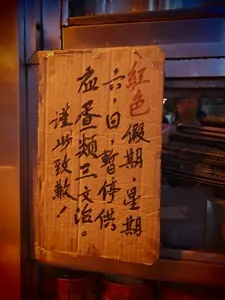 紅色假期,星期
六,日,暫停供
应蛋類三文治。
謹此致歉!